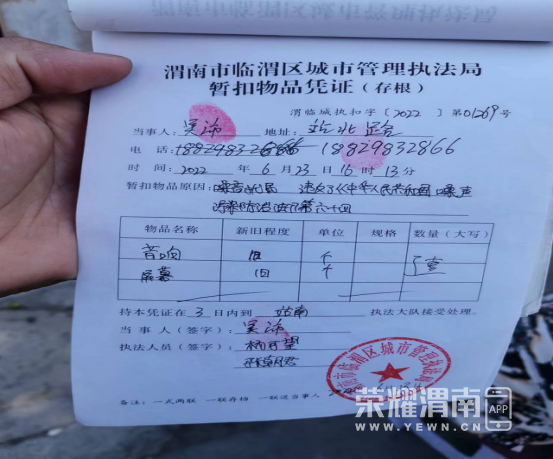 市临渭区城市管理执法局
渭南市临渭区城市管理执法局
暂扣物品凭证（存根）
渭临城执扣字〔2022〕第01269号
当事人：吴沛 地址：站北
电话：18829832866
时间：2022 年 6 月 23 日 16 时 13 分
暂扣物品原因：噪音 违反了《中华人民共和国噪声
污染防治法》第六十四
物品名称 新旧程度 单位 规格 数量（大写）
音响 旧 个 壹
屏幕 旧 个
持本凭证在 3 日内到 站南 执法大队接受处理。
当事人（签字）：吴沛
执法人员（签字）：
渭南市临渭区城市管理执法局
备注：一式两联 一联存档 一联送当事人
荣耀渭南 APP
WWW.YEWN.CN